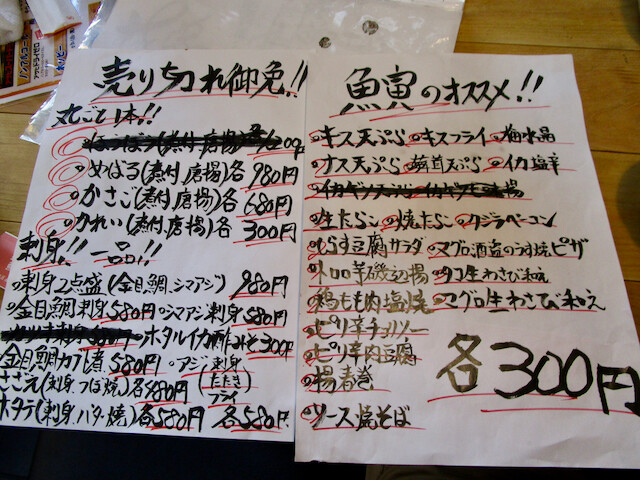 売り切れ御免!!
丸ごと1本!!
めばる(煮付、唐揚)各 980円
かさご(煮付、唐揚)各 680円
かれい(煮付、唐揚)各 300円
刺身!! 一品!!
刺身2点盛(金目鯛、シマアジ) 980円
金目鯛刺身580円 シマアジ刺身580円
ホタルイカ酢みそ300円
金目鯛カブト煮 580円 アジ(刺身 たたき フライ)
さざえ(刺身、つぼ焼)各480円
ホタテ(刺身、バター焼)各580円 各580円
魚寅のオススメ!!
キス天ぷら キスフライ 梅水晶
ナス天ぷら 舞茸天ぷら イカ塩辛
生たらこ 焼たらこ クジラベーコン
しらす豆腐サラダ マグロ酒盗のうす焼ピザ
トロロ芋磯辺揚 タコ生わさび和え
鶏もも肉塩焼 マグロ生わさび和え
ピリ辛チョリソー
ピリ辛肉豆腐
揚春巻
ソース焼そば
各300円